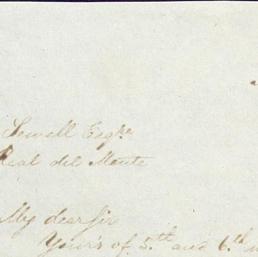 Sewell Esqre
Real del Monte
My dear Sir
Your's of 5.th and 6.th